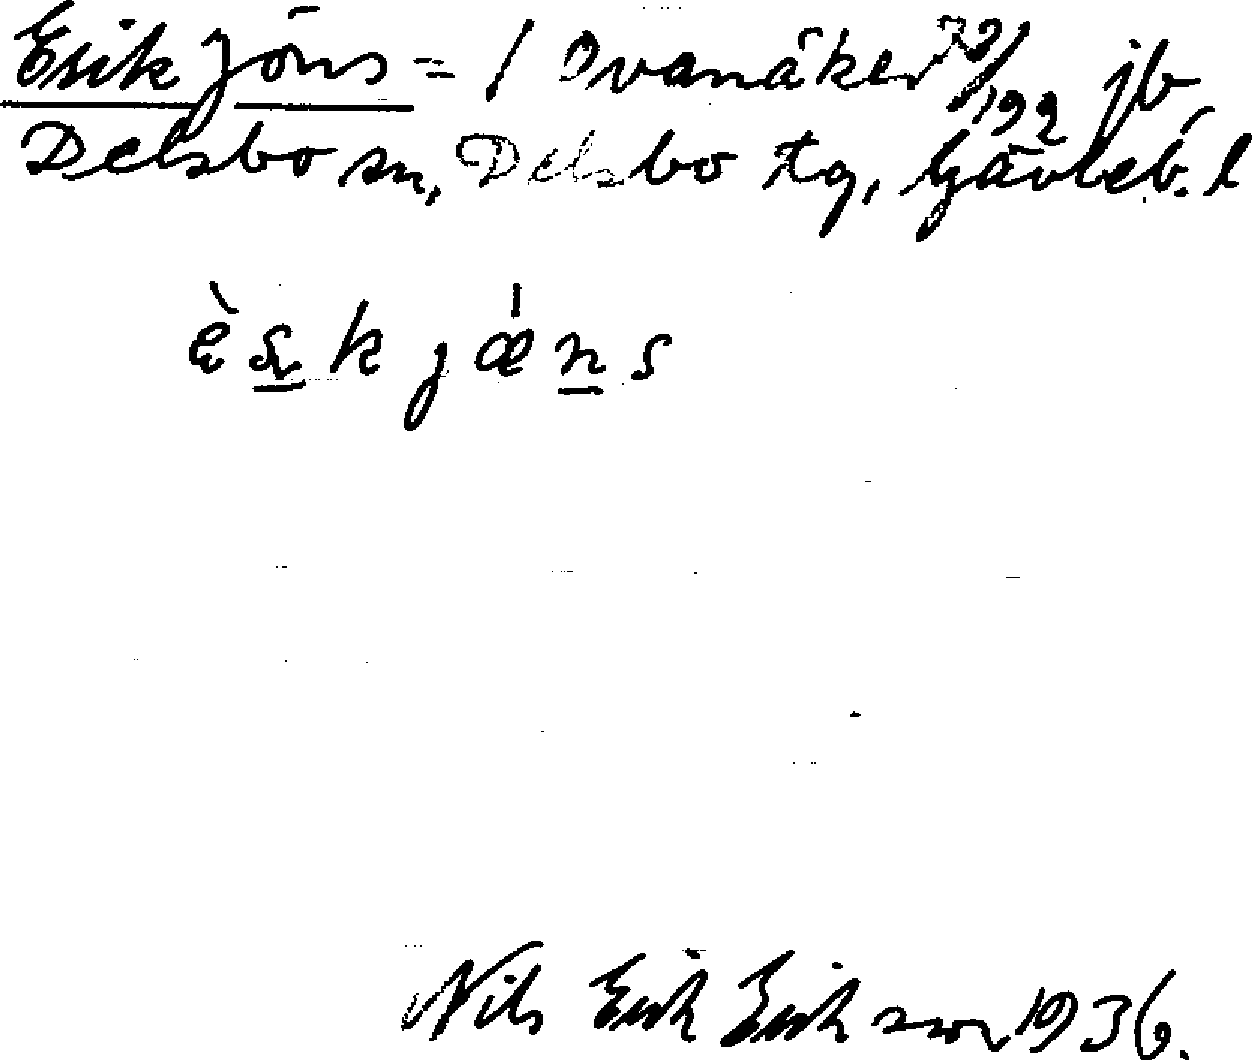 Erik Jöns = / Ovanåker 72/192 jb,
Delsbo sn, Delsbo tg, Gävleb. l
èsk jæns
Nils Erik Eriksson 1936.